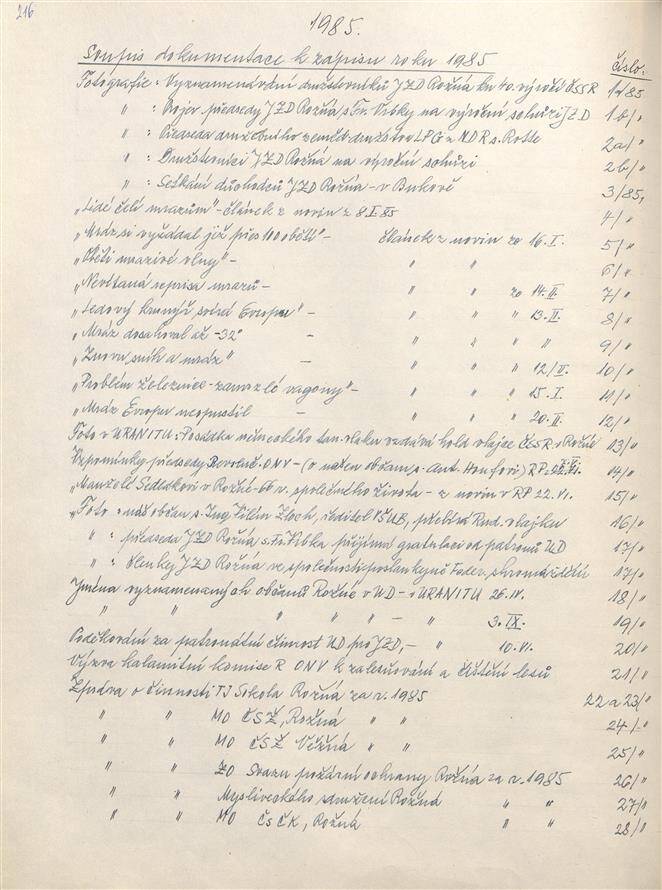 216
1985.
Soupis dokumentace k zápisu roku 1985
číslo:
Fotografie: Vyznamenávání družstevníků JZD Rožná ku 40. výročí ČSSR 1a/85
" : Projev předsedy JZD Rožná s. Fr. Vrbky na výroční schůzi JZD 1b/"
" : Předseda družebního zeměd. družstva LPG z NDR s. Rotte 2a/"
" : Družstevníci JZD Rožná na výroční schůzi 2b/"
" : Setkání důchodců JZD Rožná - v Bukově 3/85,
"Lidé čelí mrazům" - článek z novin z 8.I.85 4/"
"Mráz si vyžádal již přes 100 obětí" - článek z novin ze 16.I. 5/"
"Oběti mrazivé vlny" - " " 6/"
"Nevítaná reprisa mrazů - " " ze 14.II. 7/"
"Ledový krunýř svírá Evropu" - " " " 13.II. 8/"
"Mráz dosahoval až -32° - " " " 9/"
"Znovu sníh a mráz" - " " " 12/II. 10/"
"Problém železnice - zamrzlé vagony" - " " " 15.I. 11/"
"Mráz Evropu neopustil - " " " 20.II. 12/"
Foto v URANITU: Posádka německého tan. vlaku vzdává hold vlajce ČSSR v Rožné 13/"
Vzpomínky předsedy Revoluč. ONV - (o našem občanu p. Ant. Honfovi) RP 14/"
"Manželé Sedlákovi v Rožné - 65 r. společného života - z novin v RP 22.VI. 15/"
"Foto: náš občan s. Ing. Vilém Zloch, ředitel VŠUB, přebírá Rud. vlajku 16/"
" " : předseda JZD Rožná s. Fr. Vrbka přijímá gratulaci od patronů UD 17/"
" : členky JZD Rožná ve společnosti poslankyně Feder. shromáždění 17/"
Jména vyznamenaných občanů Rožné v UD - v URANITU 26.IV. 18/"
" " " " " - " 3.IX. 19/"
Poděkování za patronátní činnost UD pro JZD, - " 10.VI. 20/"
Výzva kalamitní komise R ONV k zalesňování a čištění lesů 21/"
Zpráva o činnosti TJ Sokola Rožná za r. 1985 22 a 23/"
" " MO ČSŽ, Rožná " " 24/"
" " MO ČSŽ Věžná " " 25/"
" " ZO Svazu požární ochrany Rožná za r. 1985 26/"
" " Mysliveckého sdružení Rožná " " 27/"
" " MO ČSČK, Rožná " " 28/"